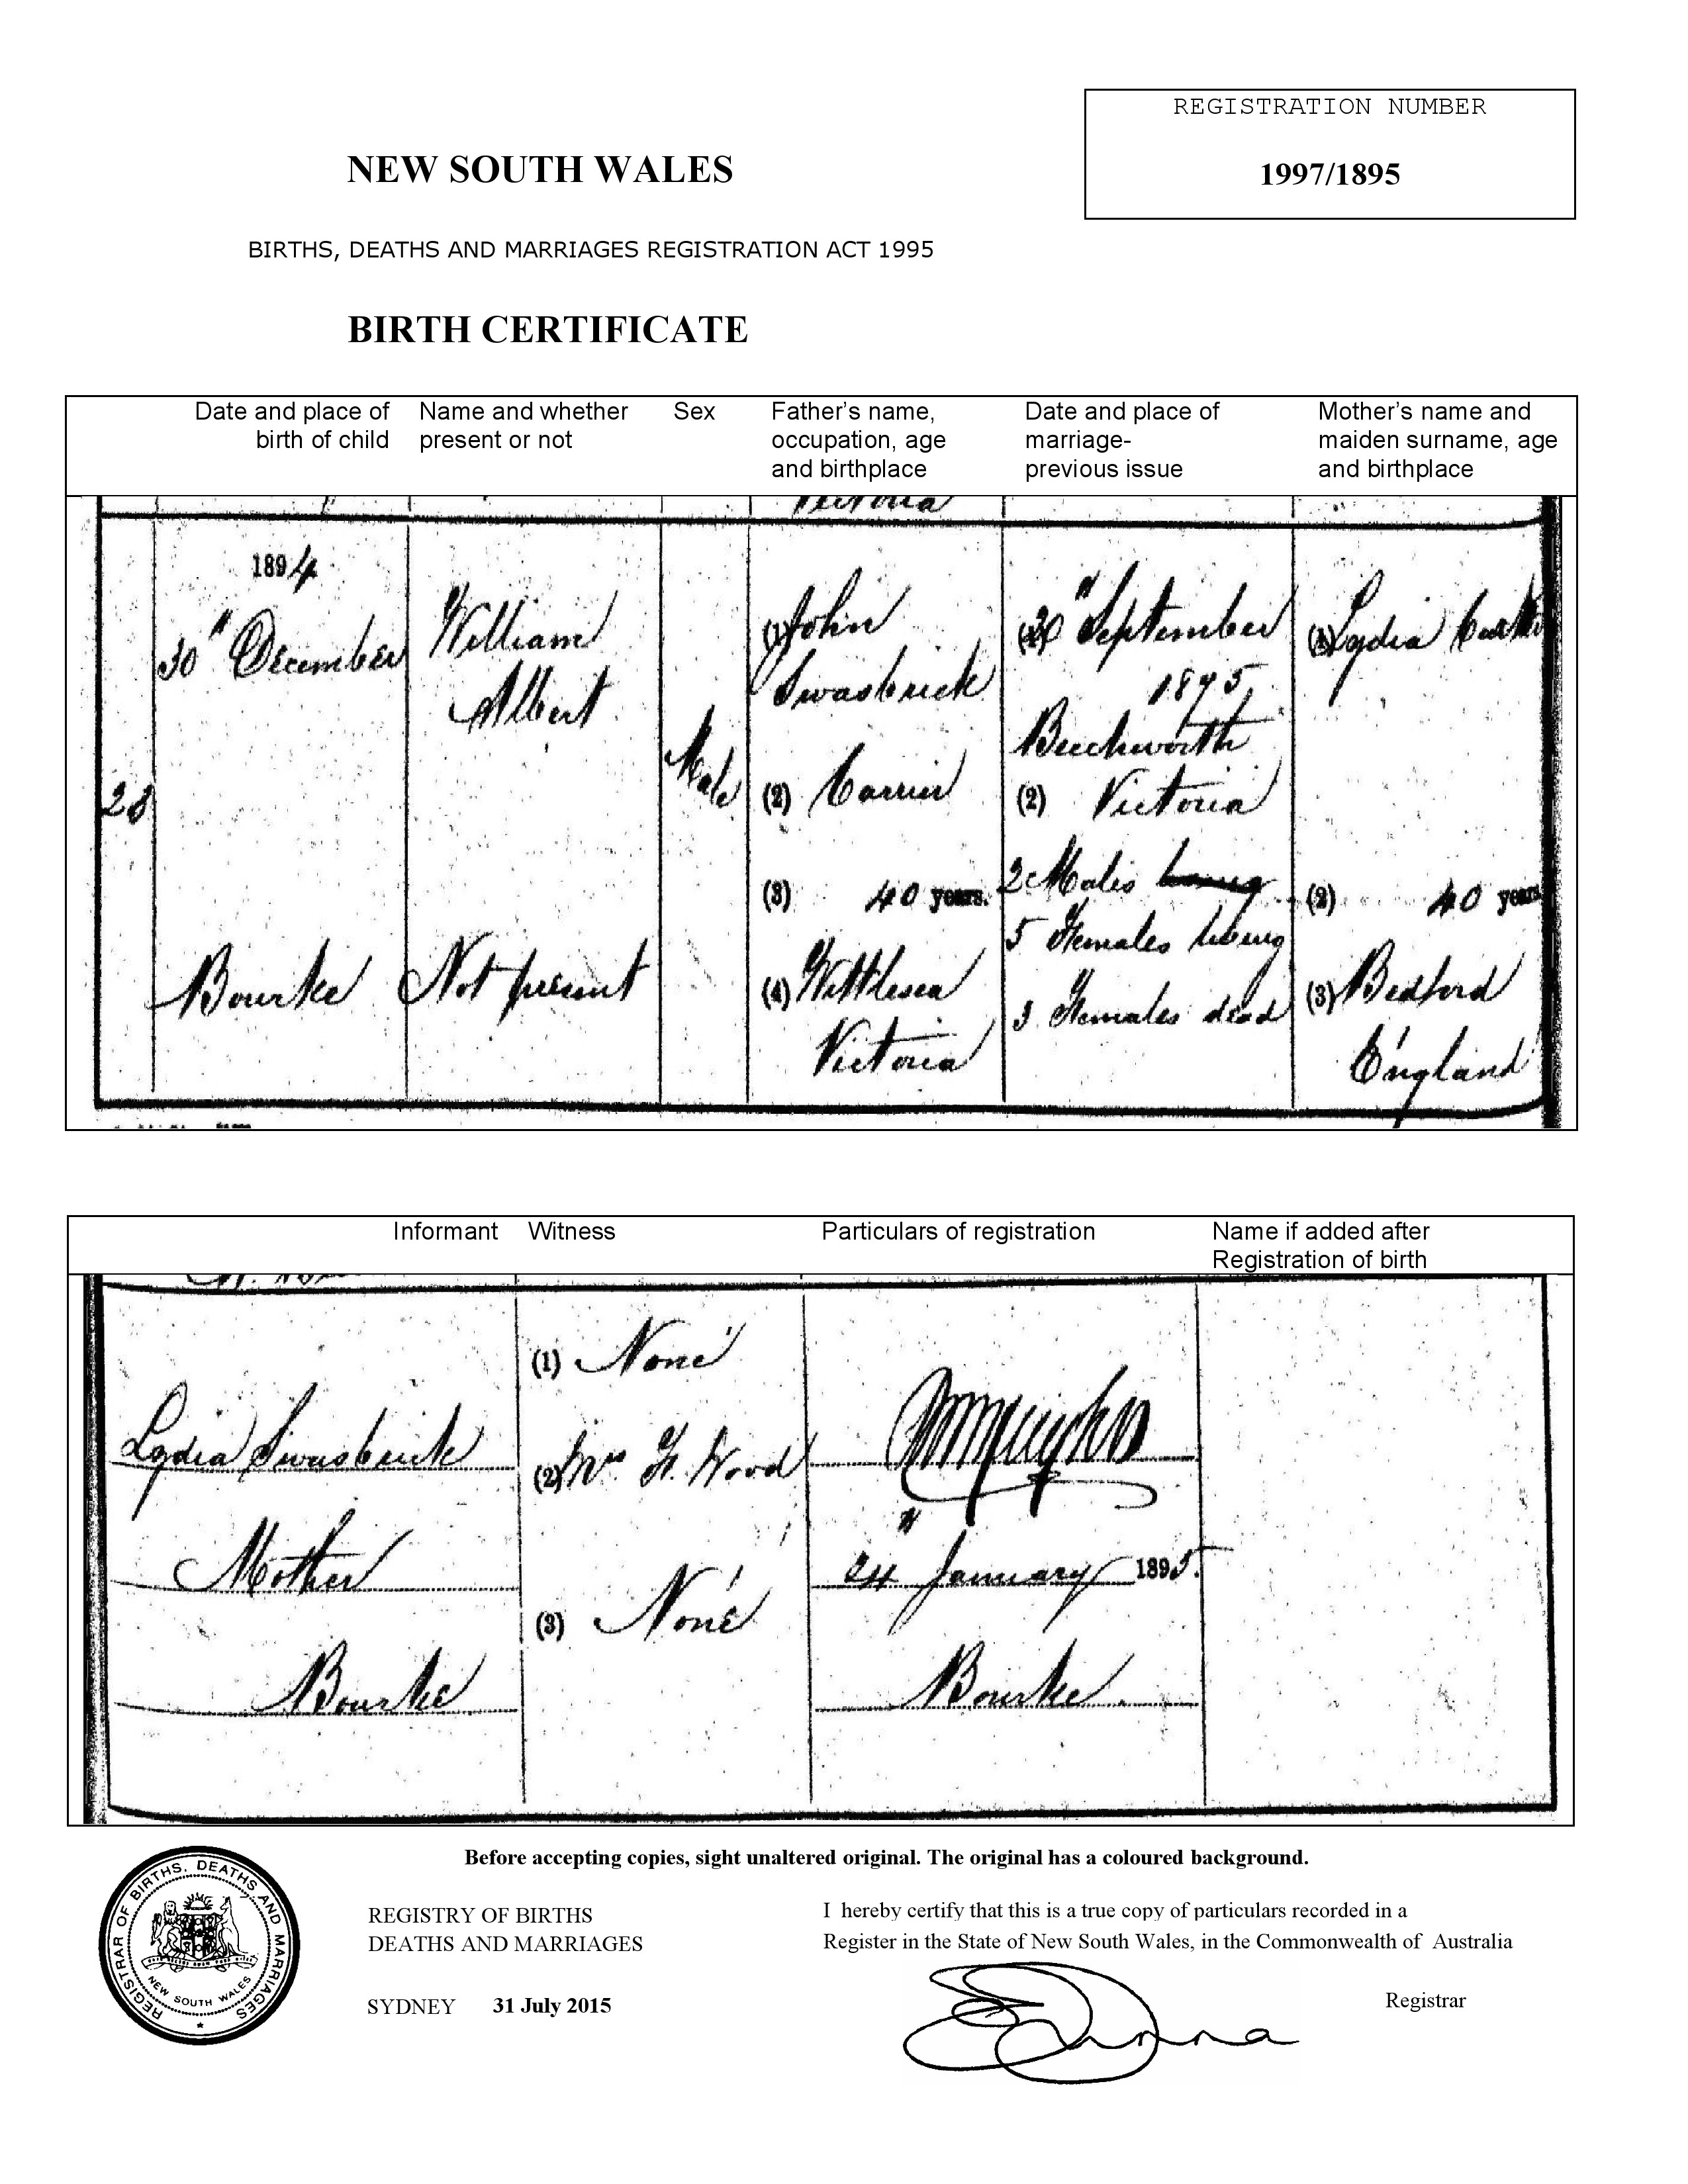 REGISTRATION NUMBER
1997/1895
NEW SOUTH WALES
BIRTHS, DEATHS AND MARRIAGES REGISTRATION ACT 1995
BIRTH CERTIFICATE
Date and place of
birth of child
Name and whether
present or not
Sex
Father's name,
occupation, age
and birthplace
Date and place of
marriage-
previous issue
Mother's name and
maiden surname, age
and birthplace
Victoria
28
1894
30" December
Bourke
William
Albert
Not present
Male
(1) John
Swasbrick
(2) Carrier
(3) 40 years.
(4) Wittlesea
Victoria
20" September
1875
Beechworth
(2) Victoria
2 Males living
5 Females living
3 Females dead
(1) Lydia
(2) 40 years
(3) Bedford
England
Informant
Witness
Particulars of registration
Name if added after
Registration of birth
Lydia Swasbrick
Mother
Bourke
(1) None
(2) Mrs Wood
(3) None
24" January 1895.
Bourke.
Before accepting copies, sight unaltered original. The original has a coloured background.
REGISTRAR OF BIRTHS, DEATHS AND MARRIAGES
NEW SOUTH WALES
REGISTRY OF BIRTHS
DEATHS AND MARRIAGES
SYDNEY 31 July 2015
I hereby certify that this is a true copy of particulars recorded in a
Register in the State of New South Wales, in the Commonwealth of Australia
Registrar